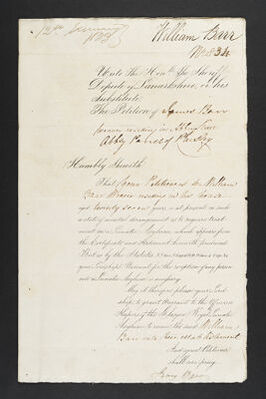 12th January
William Barr
No 834
Unto The Honble The Sheriff
Depute of Lanarkshire, or his
Substitute.
The Petition of James Barr
residing in
Abby Parish of Paisley
Humbly Sheweth
That your Petitioner's William
Barr residing in
aged twenty seven years is at present in such
a state of mental derangement as to require treat
ment in a Lunatic Asylum which appears from
the Certificate and Statement herewith produced
That by the Statutes
your Lordship's Warrant for the reception of any person
into a Lunatic Asylum is necessary
May it therefore please your Lord
ship to grant Warrant to the
Keepers of the Glasgow Royal Lunatic
Asylum to the said William
Barr
And your Petitioner
shall ever pray.
James Barr